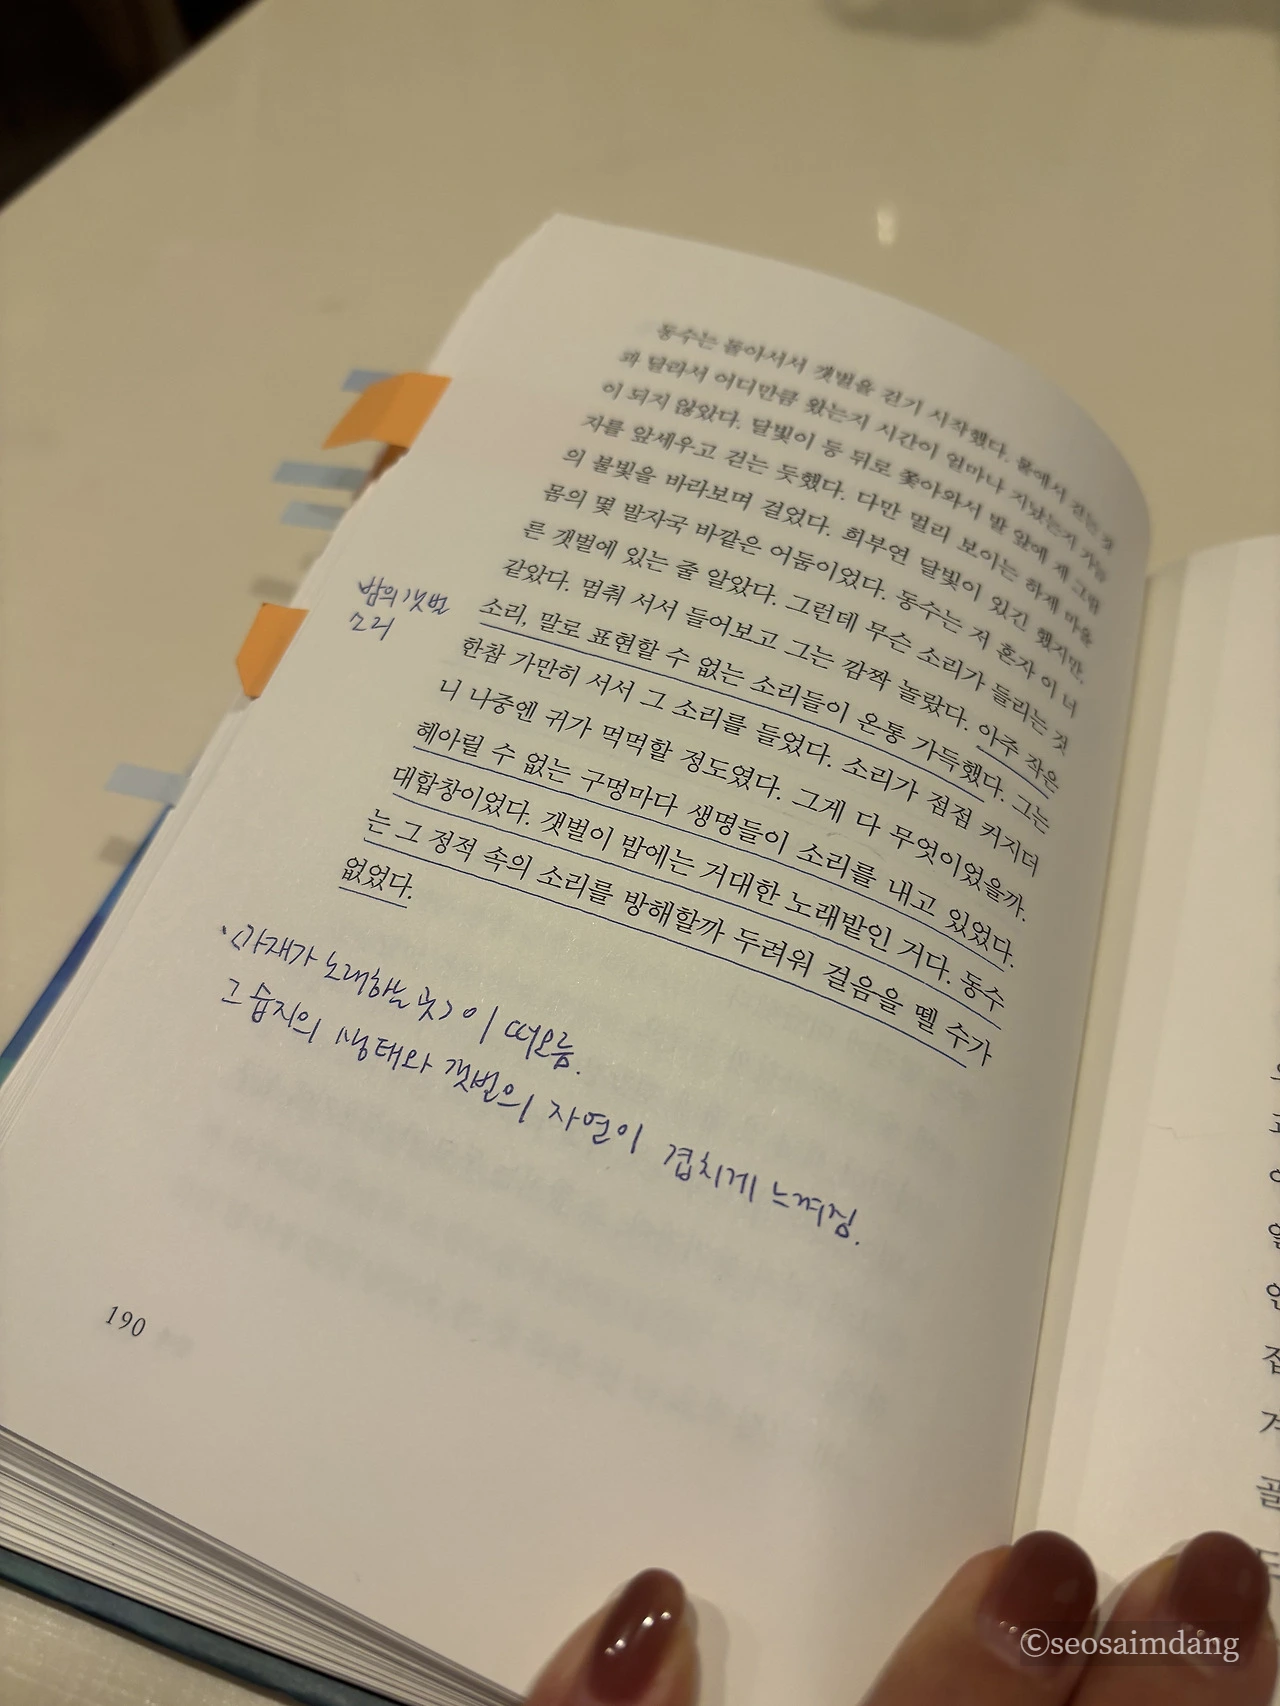 동수는 돌아서서 갯벌을 걷기 시작했다. 뭍에서 걷는 것
과 달라서 어디만큼 왔는지 시간이 얼마나 지났는지 가늠
이 되지 않았다. 달빛이 등 뒤로 쫓아와서 발 앞에 제 그림
자를 앞세우고 걷는 듯했다. 다만 멀리 보이는 하제 마을
의 불빛을 바라보며 걸었다. 희부연 달빛이 있긴 했지만,
몸의 몇 발자국 바깥은 어둠이었다. 동수는 저 혼자 이 너
른 갯벌에 있는 줄 알았다. 그런데 무슨 소리가 들리는 것
같았다. 멈춰 서서 들어보고 그는 깜짝 놀랐다. 아주 작은
소리, 말로 표현할 수 없는 소리들이 온통 가득했다. 그는
한참 가만히 서서 그 소리를 들었다. 소리가 점점 커지더
니 나중엔 귀가 먹먹할 정도였다. 그게 다 무엇이었을까.
헤아릴 수 없는 구멍마다 생명들이 소리를 내고 있었다.
대합창이었다. 갯벌이 밤에는 거대한 노래밭인 거다. 동수
는 그 정적 속의 소리를 방해할까 두려워 걸음을 뗄 수가
없었다.
밤의 갯벌
소리
<가재가 노래하는 곳>이 떠오름.
그 습지의 생태와 갯벌의 자연이 겹치게 느껴짐.
190
©seosaimdang